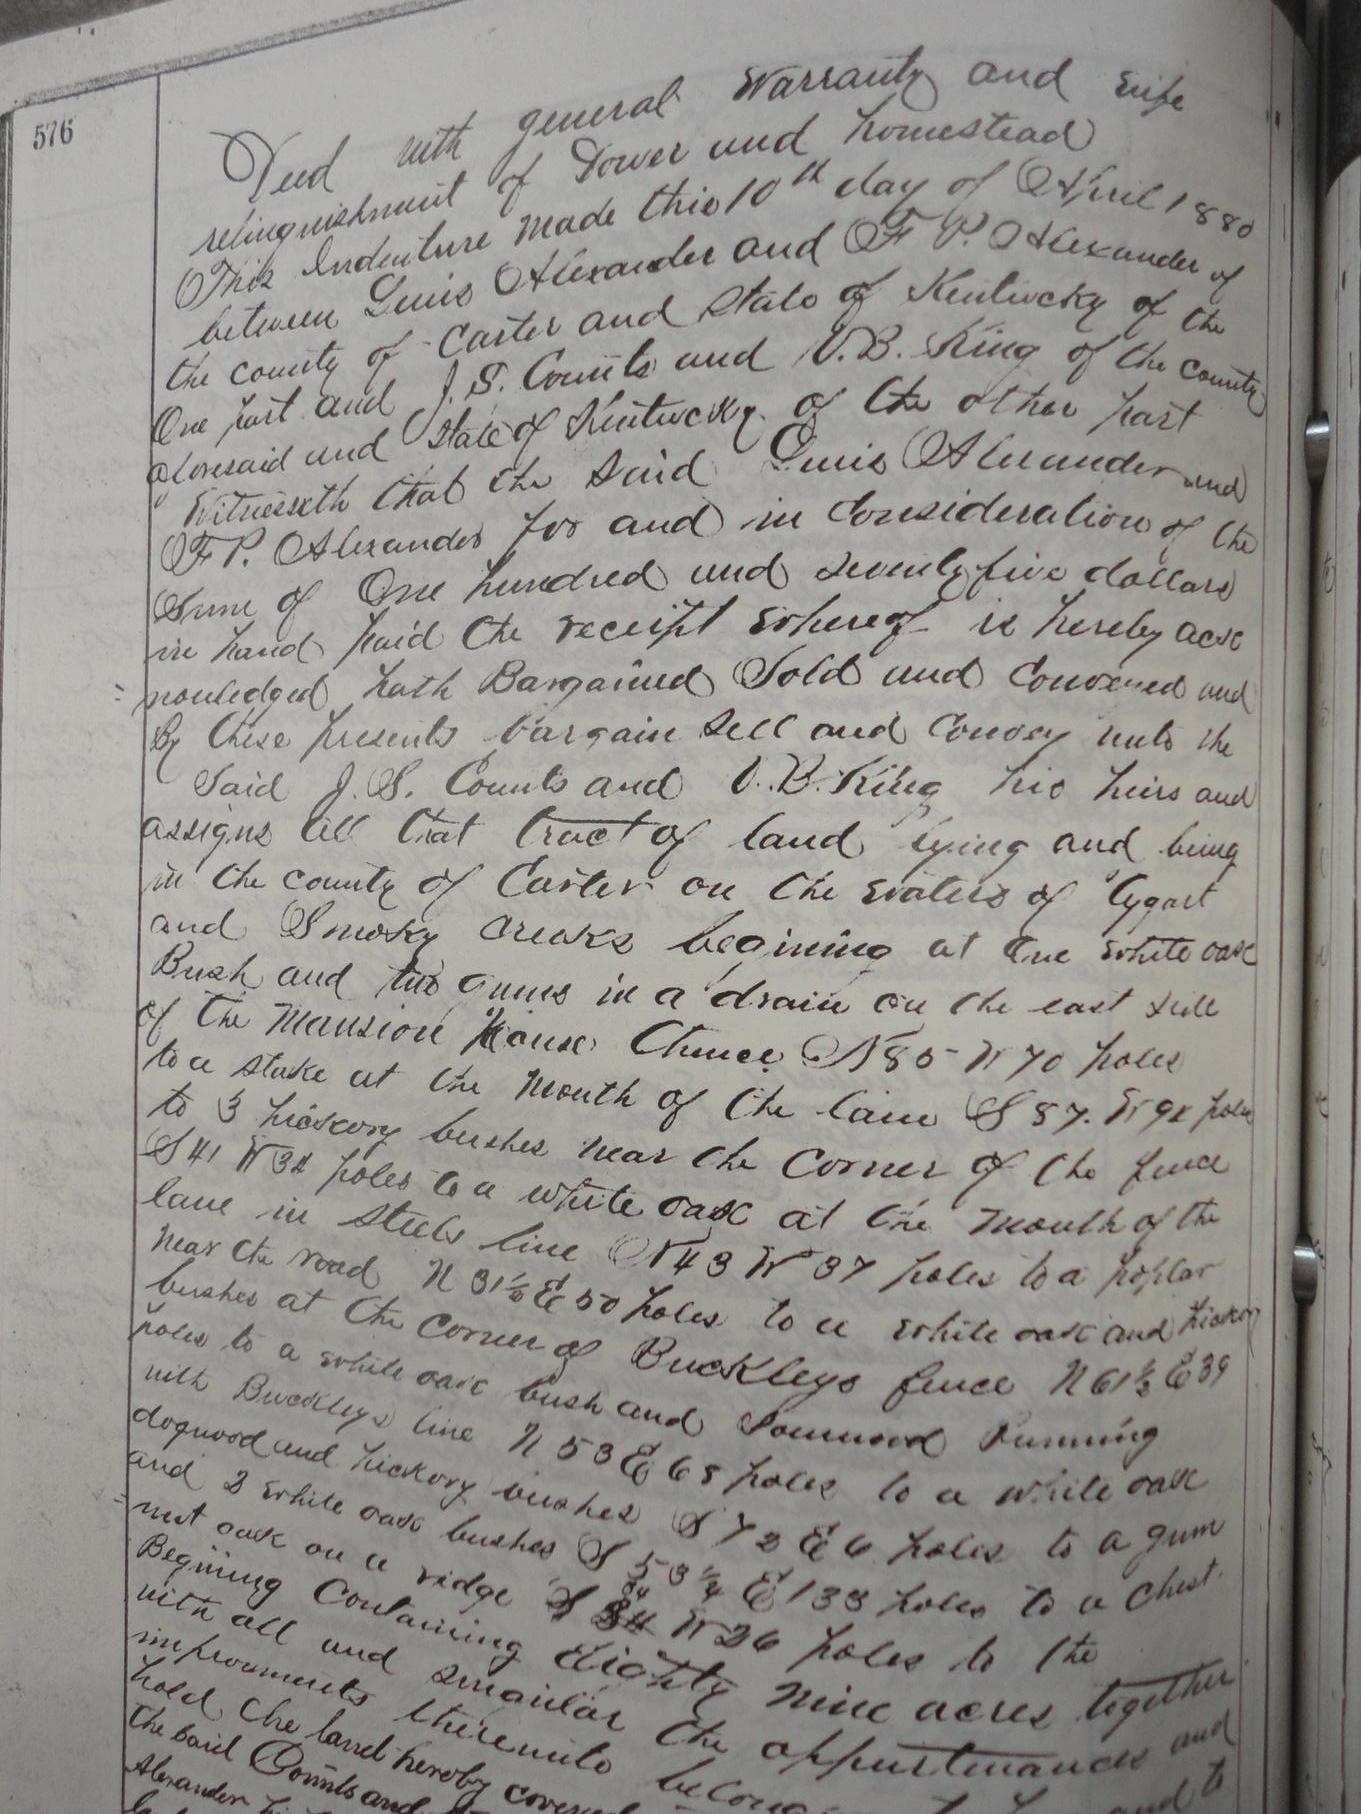 576
Deed with general Warranty and wife
relinquishment of Dower and homestead
This Indenture Made this 10th day of April 1880
between Lewis Alexander and F P. Alexander of
the county of Carter and State of Kentucky of the
One part and J. S. Counts and V. B. King of the county
aforesaid and State of Kentucky of the other part
Witnesseth that the Said Lewis Alexander and
F P. Alexander for and in Consideration of the
Sum of One hundred and seventy five dollars
in hand paid the receipt whereof is hereby ack
nowledged hath Bargained Sold and Conveyed and
By these presents bargain Sell and Convey unto the
Said J. S. Counts and V. B. King his heirs and
assigns all that tract of land lying and being
in the county of Carter on the waters of Tygart
and Smoky creeks begining at One white oak
Bush and two gums in a drain on the east side
of the Mansion House Thence N 85 W 70 poles
to a stake at the Mouth of the lane S 87. W 92 poles
to 3 hickory bushes near the Corner of the fence
S 41 W 34 poles to a white oak at the Mouth of the
lane in Steels line N 43 W 37 poles to a poplar
near the road N 31½ E 50 poles to a white oak and hickory
bushes at the Corner of Buckleys fence N 61½ E 39
poles to a white oak bush and Sourwood Running
with Buckleys line N 53 E 68 poles to a white oak
dogwood and hickory bushes S 72 E 6 poles to a gum
and 2 white oak bushes S 53¼ E 133 poles to a Chest
nut oak on a ridge S 34 W 26 poles to the
Begining Containing Eighty Nine acres together
with all and singular the appurtenances and
improvements thereunto
hold the land hereby and to
the said Counts and
Alexander